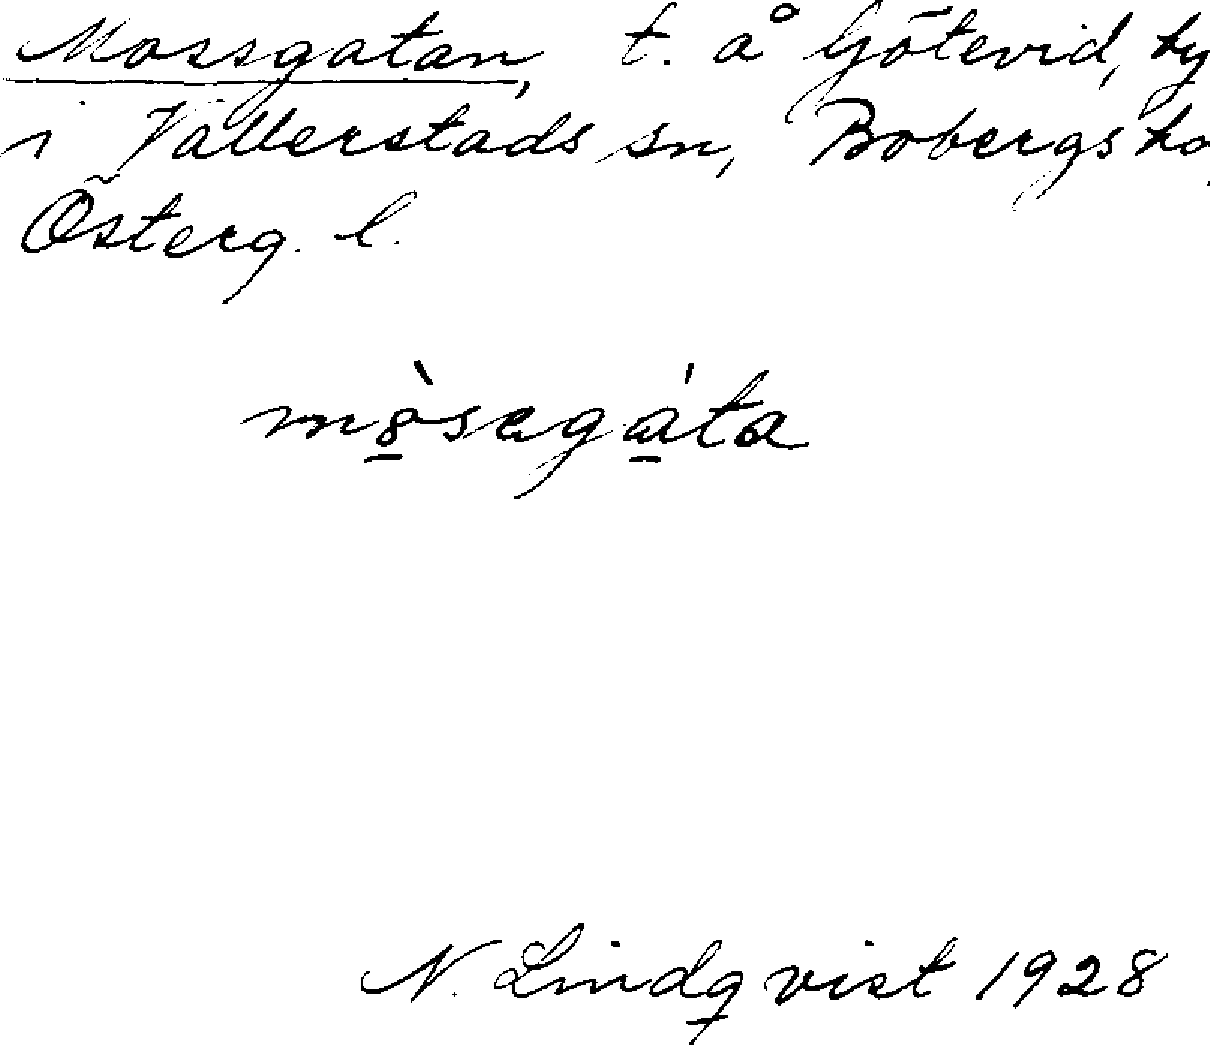 Mossgatan, t. å Götevid, by
i Vallerstads sn, Bobergs hd,
Österg. l.
mò̲segá̲ta
N. Lindqvist 1928